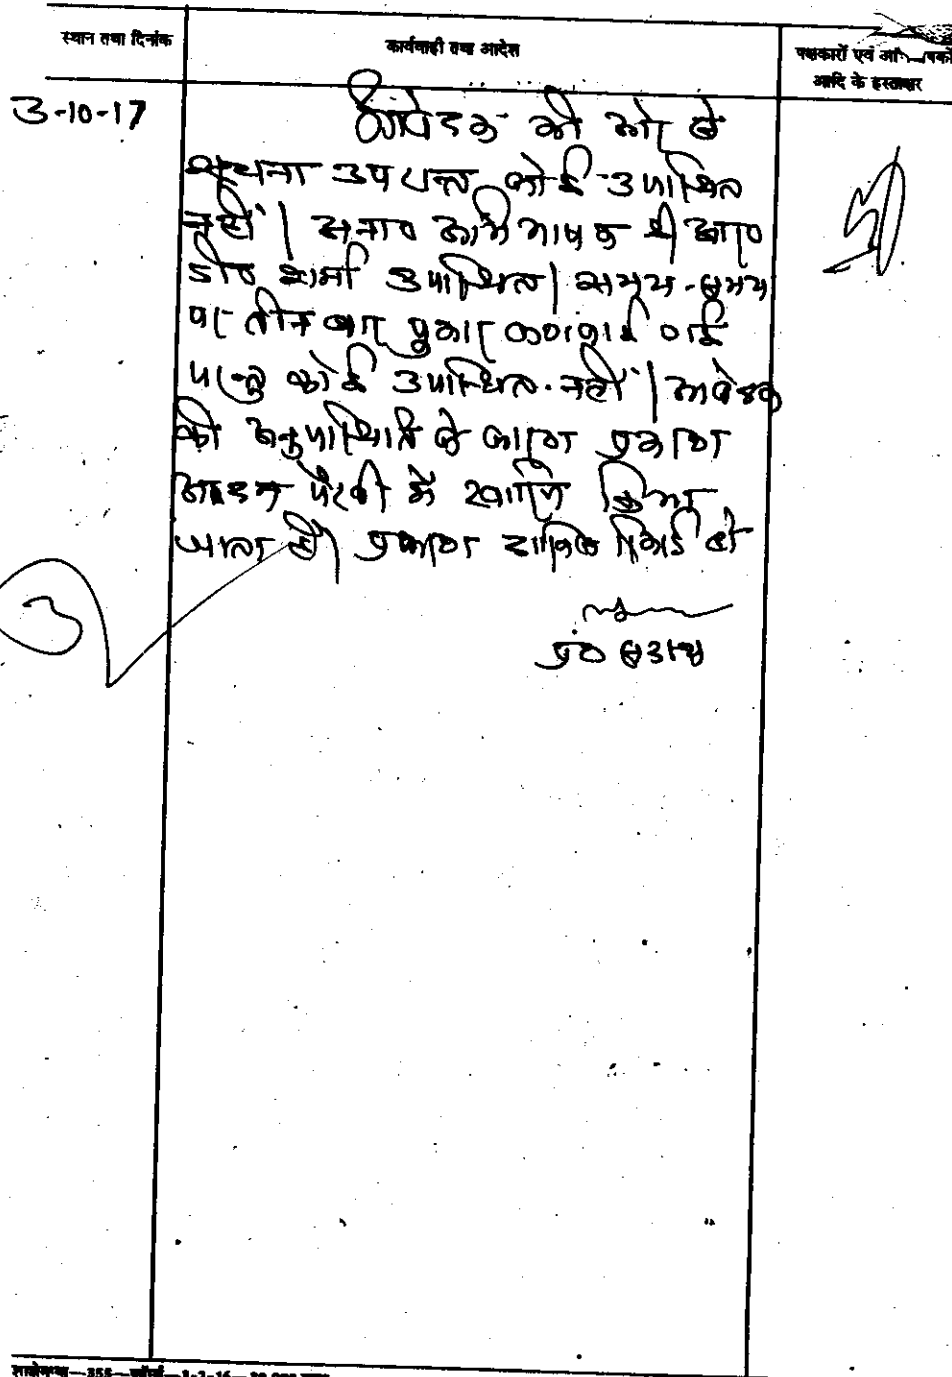 स्थान तथा दिनांक
कार्यवाही तथा आदेश
पक्षकारों एवं
आदि के हस्ताक्षर
3-10-17
आवेदक की ओर से
सूचना उपरान्त कोई उपस्थित
नहीं। अनाव० अभिभाषक श्री आर०
डी० शर्मा उपस्थित। समय-समय
पर तीन बार पुकार करवाई गई
परन्तु कोई उपस्थित नहीं। आवेदक
की अनुपस्थिति के कारण प्रकरण
अदम पैरवी में खारिज किया
जाता है। प्रकरण दाखिल रिकार्ड हो